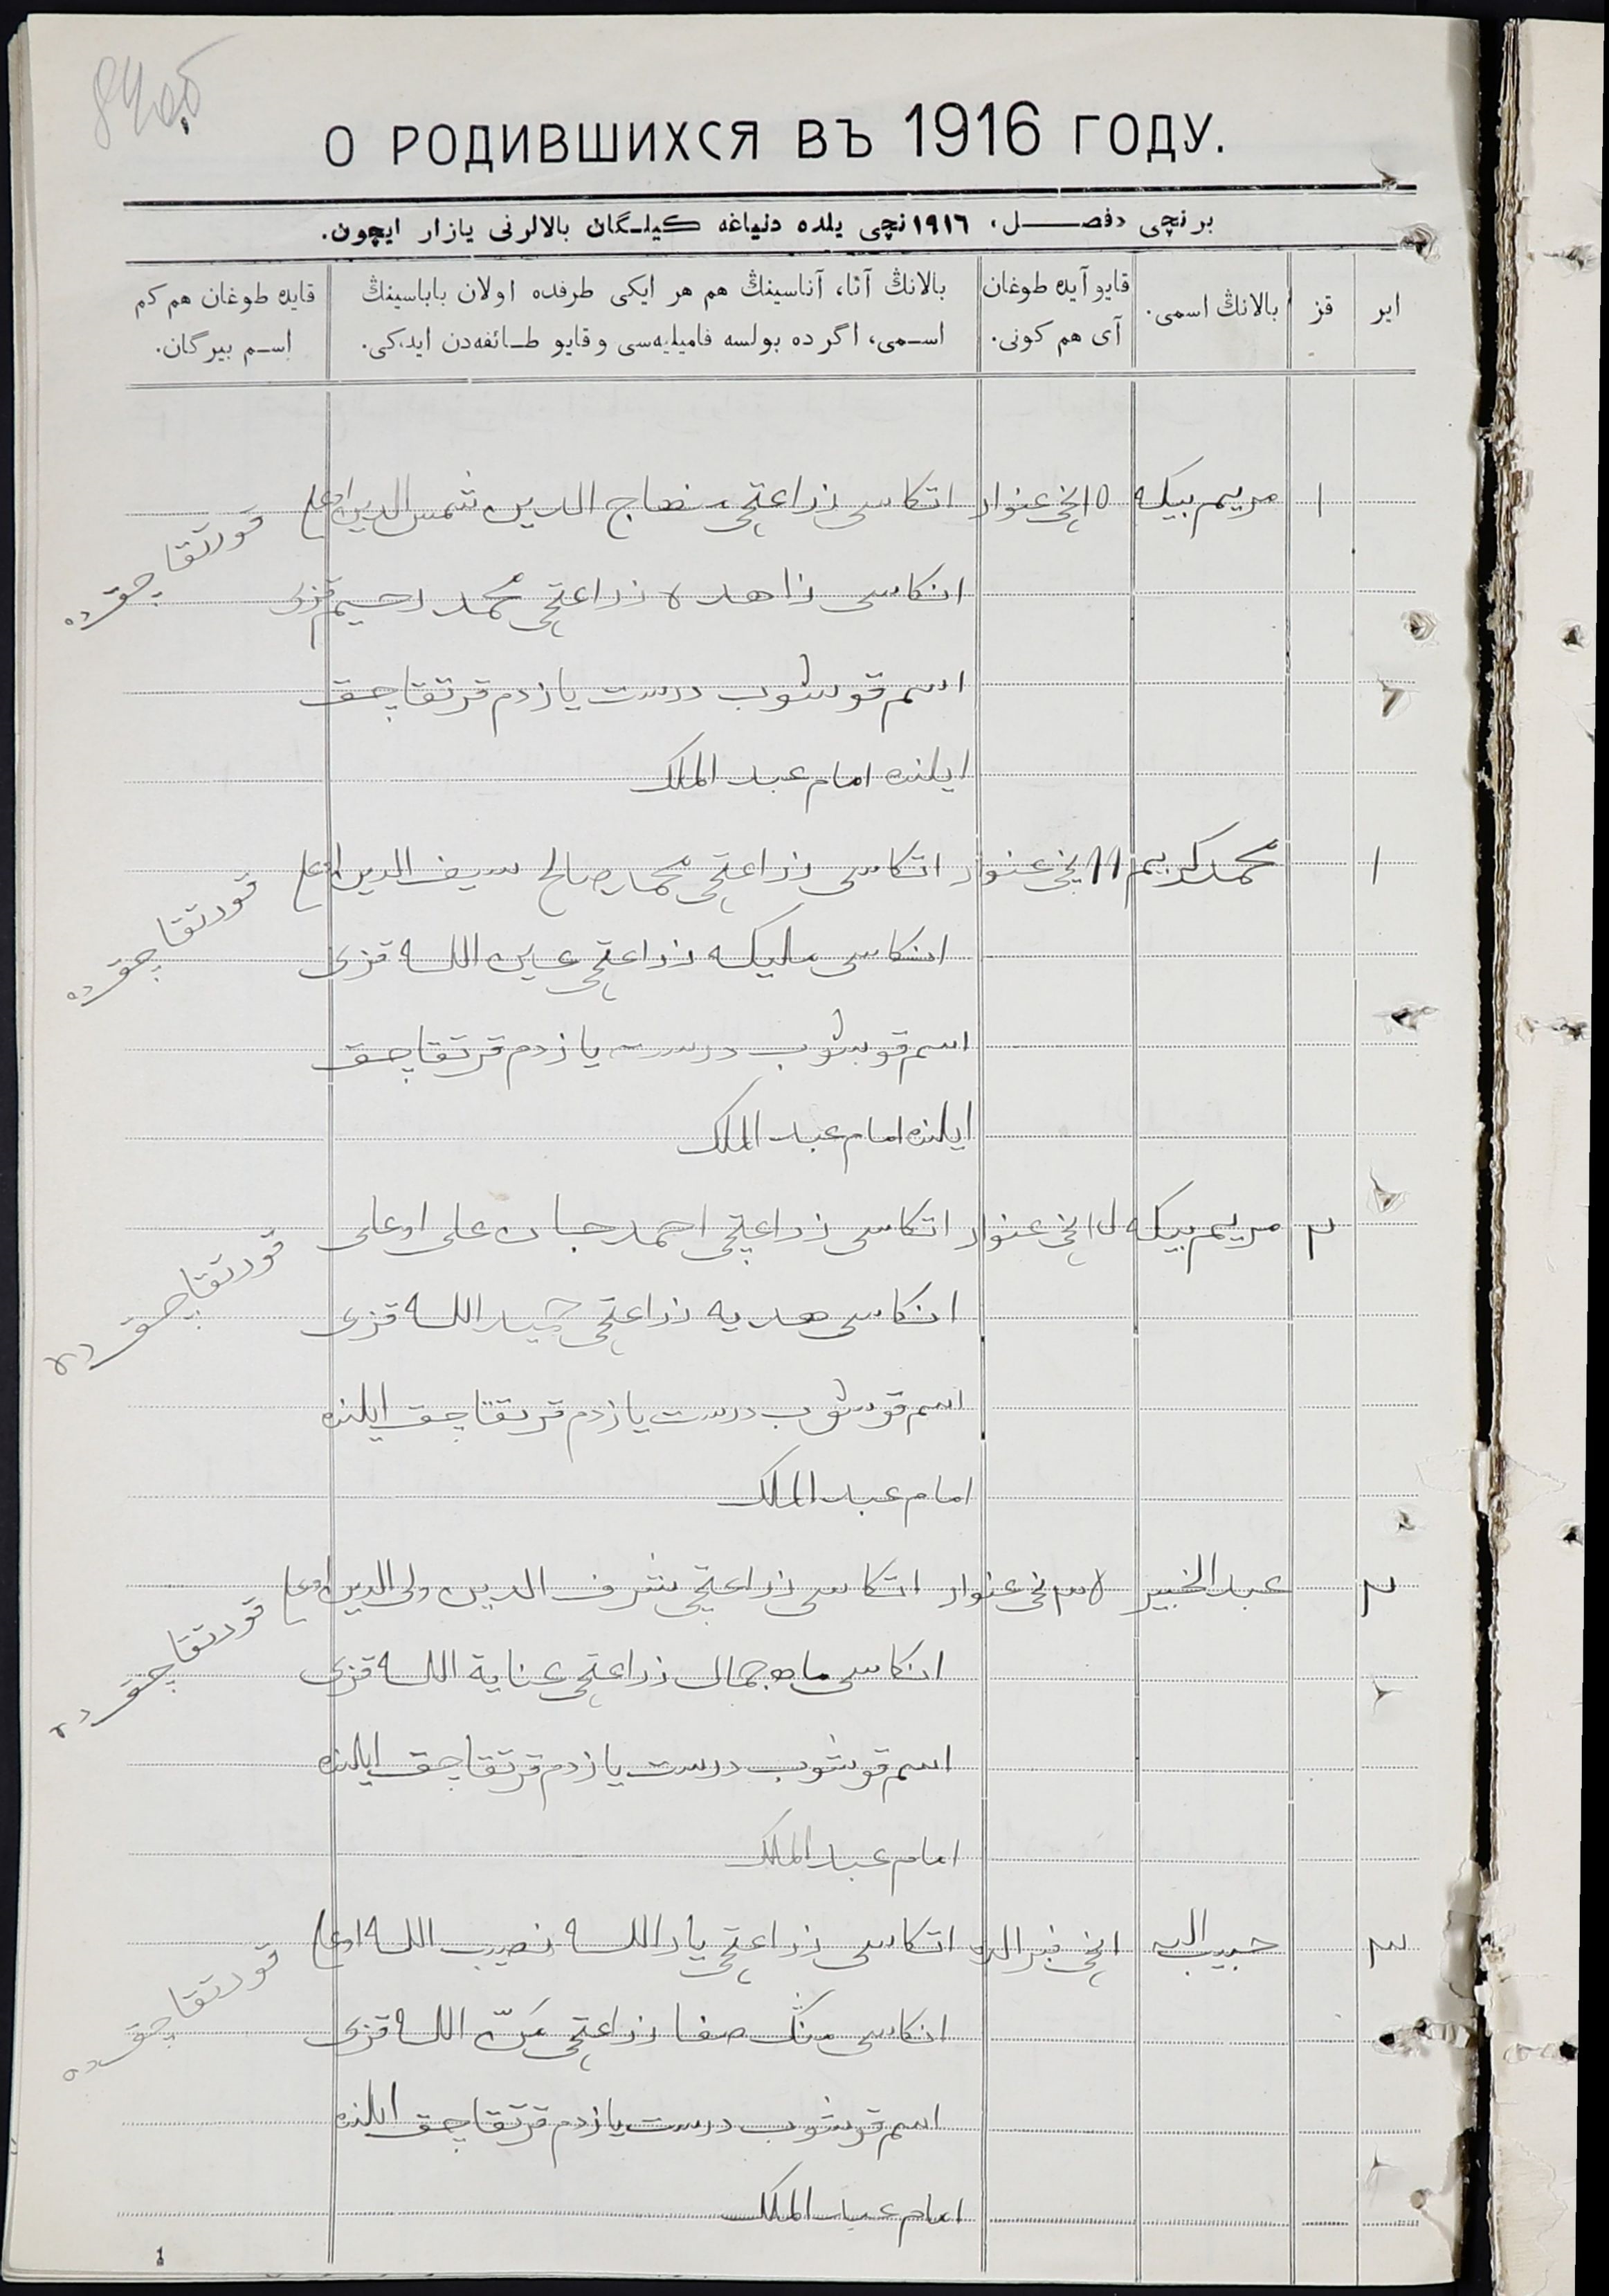 84об
О РОДИВШИХСЯ ВЪ 1916 ГОДУ.
برنچی «فصـــل» ١٩١٦نچی یلده دنیاغه کیلـگان بالالرنی یازار ایچون.
ایر
قز
بالانڭ اسمی.
قایو آیده طوغان
آی هم کونی.
بالانڭ آتا، آناسینڭ هم هر ایکی طرفده اولان باباسینڭ
اسـمی، اگر ده بولسه فامیلیه‌سی و قایو طـائفه‌دن ایدکی.
قایده طوغان هم کم
اسـم بیرگان.
١ مریم بیکه ١٥نچی غنوار اتکاسی زراعتچی منهاج الدین شمس الدین اوغلی
قورتقاچقده
انکاسی زاهده زراعتچی محمد رحیم قزی
اسم قوشوب درست یازدم قرتقاچق
ایلنده امام عبد الملک
١ محمدکریم ١١نچی غنوار اتکاسی زراعتچی محمد صالح سیف الدین اوغلی
قورتقاچقده
انکاسی ملیکه زراعتچی عین الله قزی
اسم قوشوب درست یازدم قرتقاچق
ایلنده امام عبد الملک
٢ مریم بیکه نچی غنوار اتکاسی زراعتچی احمد جان علی اوغلی
قورتقاچقده
انکاسی هدیه زراعتچی حمید الله قزی
اسم قوشوب درست یازدم قرتقاچق ایلنده
امام عبد الملک
٢ عبد الخبیر نچی غنوار اتکاسی زراعتچی شرف الدین ولی الدین اوغلی
قورتقاچقده
انکاسی ماه جمال زراعتچی عنایة الله قزی
اسم قوشوب درست یازدم قرتقاچق ایلنده
امام عبد الملک
٣ حبیب الله ١نچی اتکاسی زراعتچی یار الله نصیب الله اوغلی
قورتقاچقده
انکاسی منڭ صفا زراعتچی الله قزی
اسم قوشوب درست یازدم قرتقاچق ایلنده
امام عبد الملک
1